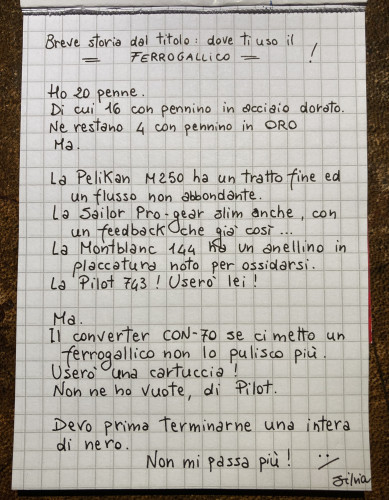 Breve storia dal titolo: dove ti uso il
= FERROGALLICO = !
Ho 20 penne.
Di cui 16 con pennino in acciaio dorato.
Ne restano 4 con pennino in ORO
Ma.
La PeliKan M250 ha un tratto fine ed
un flusso non abbondante.
La Sailor Pro-gear slim anche, con
un feedback che già così ...
La Montblanc 144 ha un anellino in
placcatura noto per ossidarsi.
La Pilot 743! Userò lei!
Ma.
Il converter CON-70 se ci metto un
ferrogallico non lo pulisco più.
Userò una cartuccia!
Non ne ho vuote, di Pilot.
Devo prima terminarne una intera
di nero.
Non mi passa più! :)
Silvia